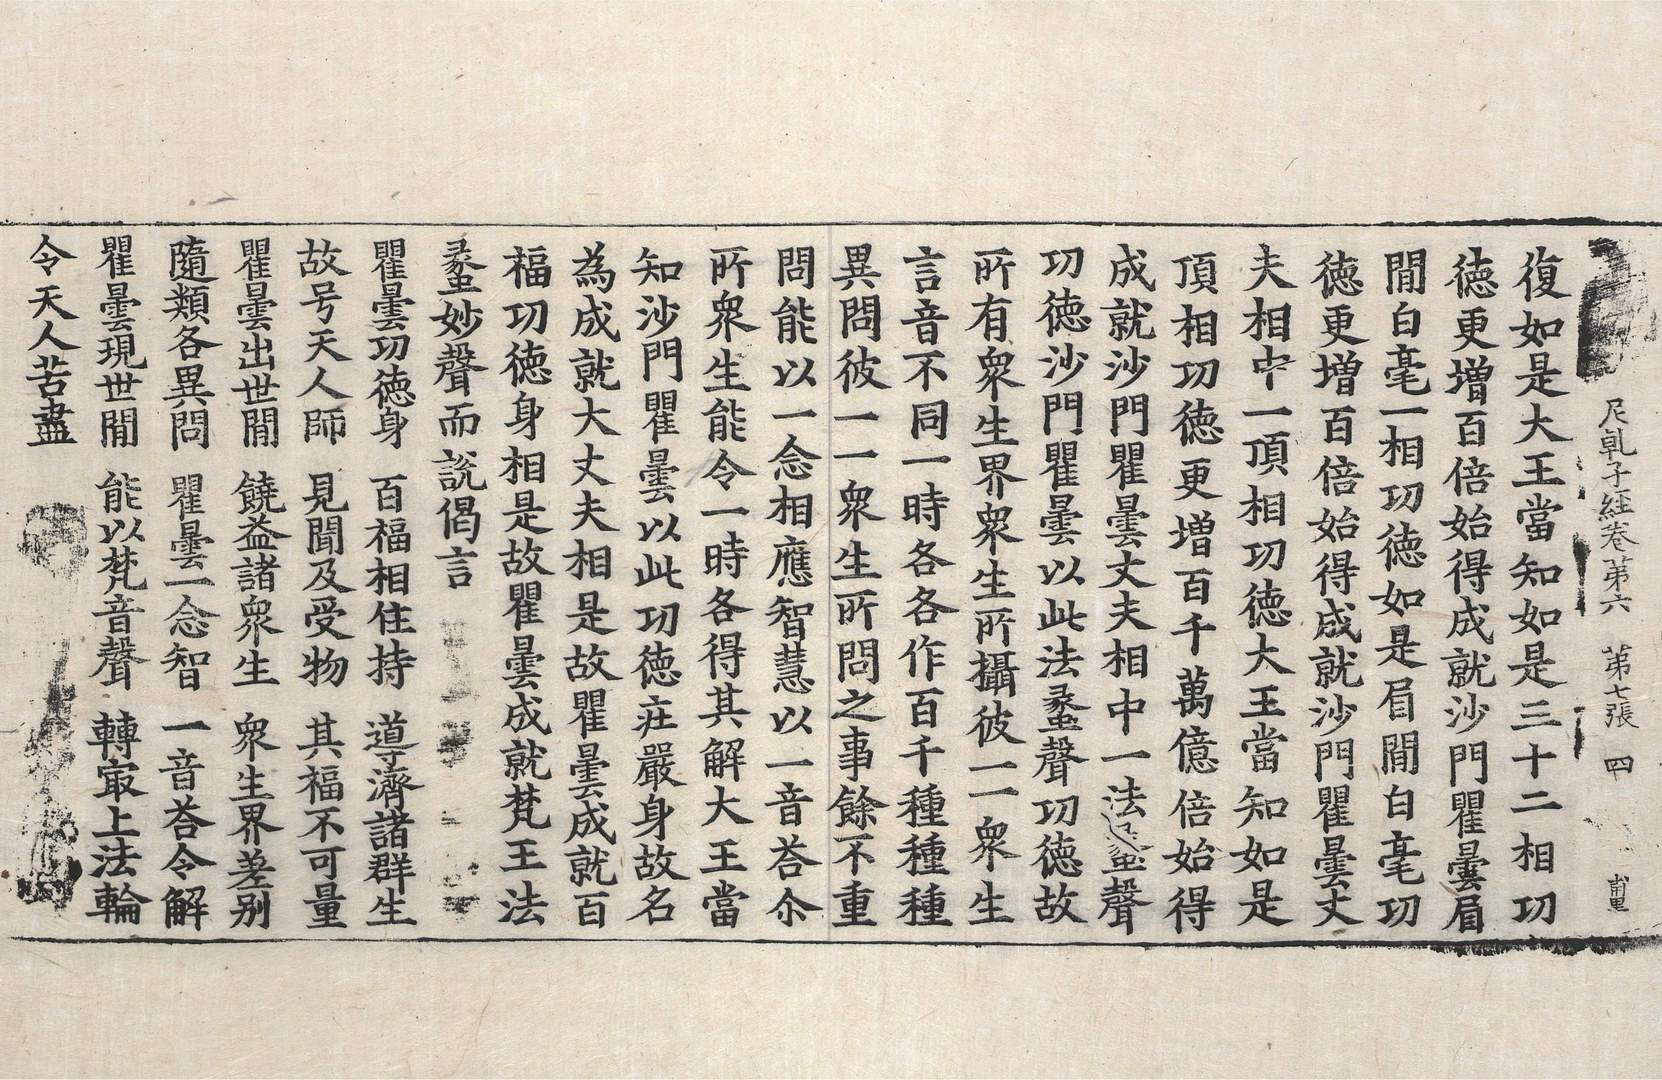 尼乹子経卷第六 第七張 四
復如是大王當知如是三十二相功
徳更增百倍始得成就沙門瞿曇眉
閒白毫一相功徳如是眉閒白毫功
徳更增百倍始得成就沙門瞿曇丈
夫相中一頂相功徳大王當知如是
頂相功徳更增百千萬億倍始得
成就沙門瞿曇丈夫相中一法蠡聲
功徳沙門瞿曇以此法蠡聲功徳故
所有衆生界衆生所攝彼一一衆生
言音不同一時各各作百千種種種
異問彼一一衆生所問之事餘不重
問能以一念相應智慧以一音荅尒
所衆生能令一時各得其解大王當
知沙門瞿曇以此功徳莊嚴身故名
為成就大丈夫相是故瞿曇成就百
福功徳身相是故瞿曇成就梵王法
蠡妙聲而說偈言
瞿曇功徳身 百福相住持 導濟諸群生
故号天人師 見聞及受物 其福不可量
瞿曇出世閒 饒益諸衆生 衆生界差别
隨類各異問 瞿曇一念智 一音荅令解
瞿曇現世閒 能以梵音聲 轉㝡上法輪
令天人苦盡